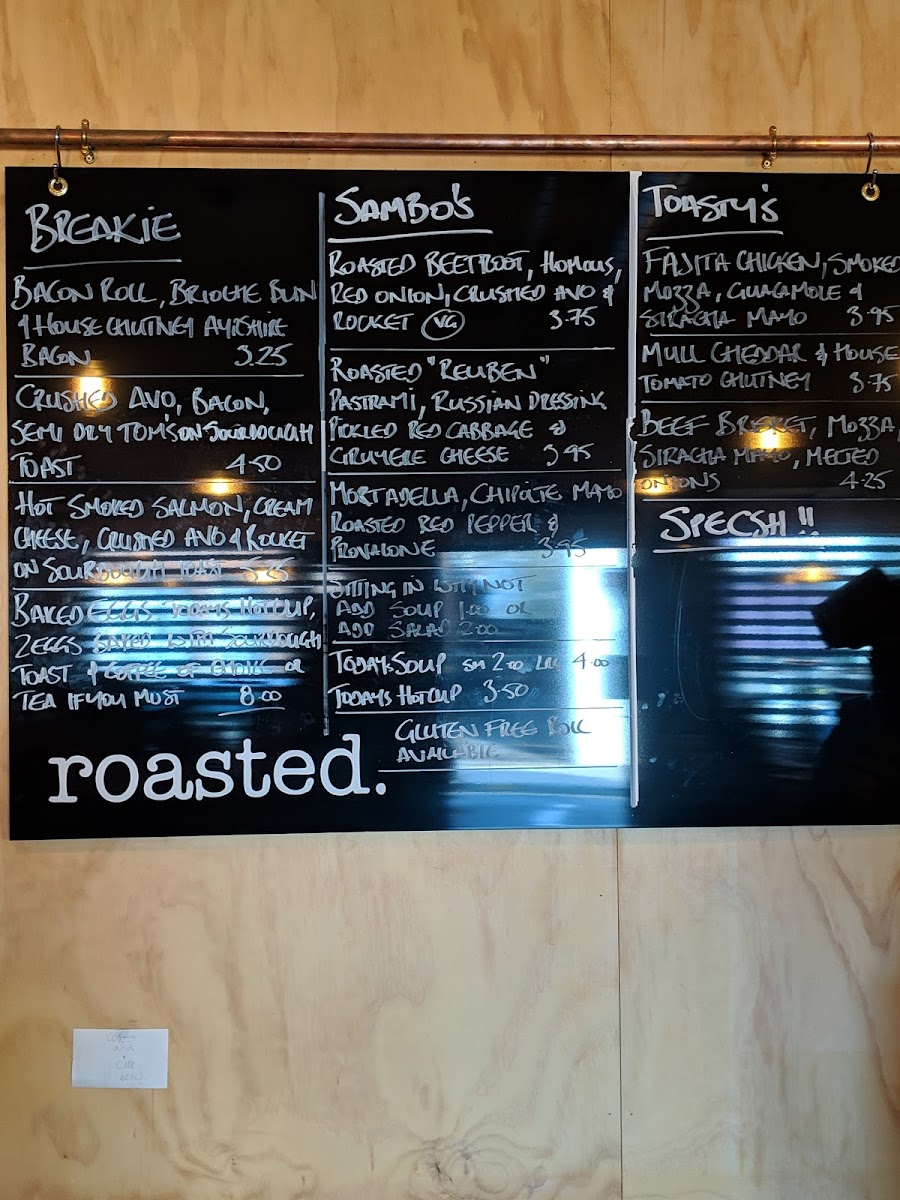 BREAKIE
BACON ROLL, BRIOCHE BUN
& HOUSE CHUTNEY AYRSHIRE
BACON 3.25
CRUSHED AVO, BACON,
SEMI DRY TOM'S ON SOURDOUGH
TOAST 4.50
HOT SMOKED SALMON, CREAM
CHEESE, CRUSHED AVO & ROCKET
ON SOURDOUGH TOAST 5.25
BAKED EGGS. TODAYS HOTCUP,
2 EGGS BAKED WITH SOURDOUGH
TOAST & COFFEE OF CHOICE OR
TEA IF YOU MUST 8.00
SAMBO'S
ROASTED BEETROOT, HOMOUS,
RED ONION, CRUSHED AVO &
ROCKET VG 3.75
ROASTED "REUBEN"
PASTRAMI, RUSSIAN DRESSING
PICKLED RED CABBAGE &
GRUYERE CHEESE 3.95
MORTADELLA, CHIPOTE MAYO
ROASTED RED PEPPER &
PROVALONE 3.95
SITTING IN WHY NOT
ADD SOUP 1.00 OR
ADD SALAD 2.00
TODAYS SOUP SM 2.00 LRG 4.00
TODAYS HOTCUP 3.50
GLUTEN FREE ROLL
AVAILABLE
TOASTY'S
FAJITA CHICKEN, SMOKED
MOZZA, GUACAMOLE &
SIRACHA MAYO 3.95
MULL CHEDDAR & HOUSE
TOMATO CHUTNEY 3.75
BEEF BRISKET, MOZZA,
SIRACHA MAYO, MELTED
ONIONS 4.25
SPECSH!!
roasted.